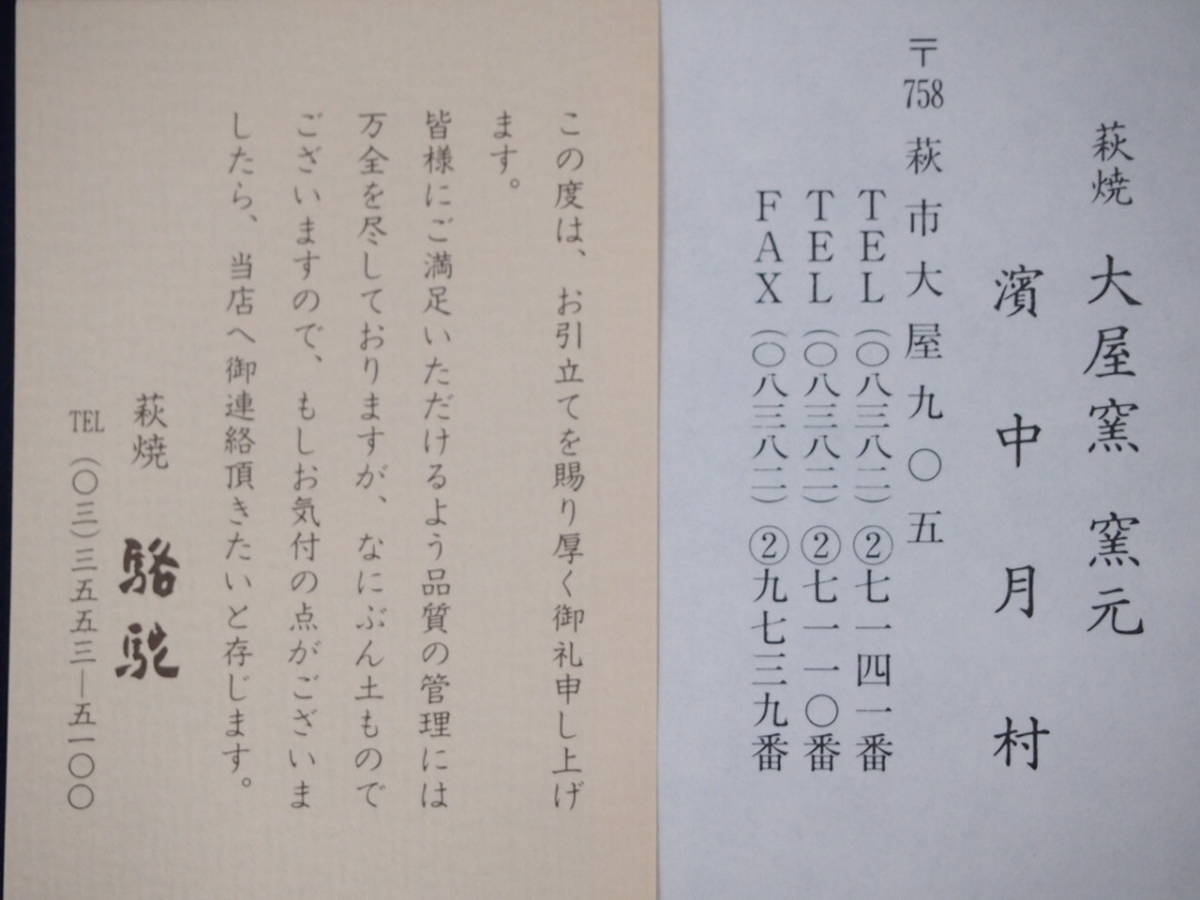 萩焼 大屋窯 窯元
濱中月村
〒758 萩市大屋九〇五
TEL(〇八三八二)②七一四一番
TEL(〇八三八二)②七一一〇番
FAX(〇八三八二)②九七三九番
この度は、お引立てを賜り厚く御礼申し上げ
ます。
皆様にご満足いただけるよう品質の管理には
万全を尽しておりますが、なにぶん土もので
ございますので、もしお気付の点がございま
したら、当店へ御連絡頂きたいと存じます。
萩焼 駱駝
TEL(〇三)三五五三―五一〇〇